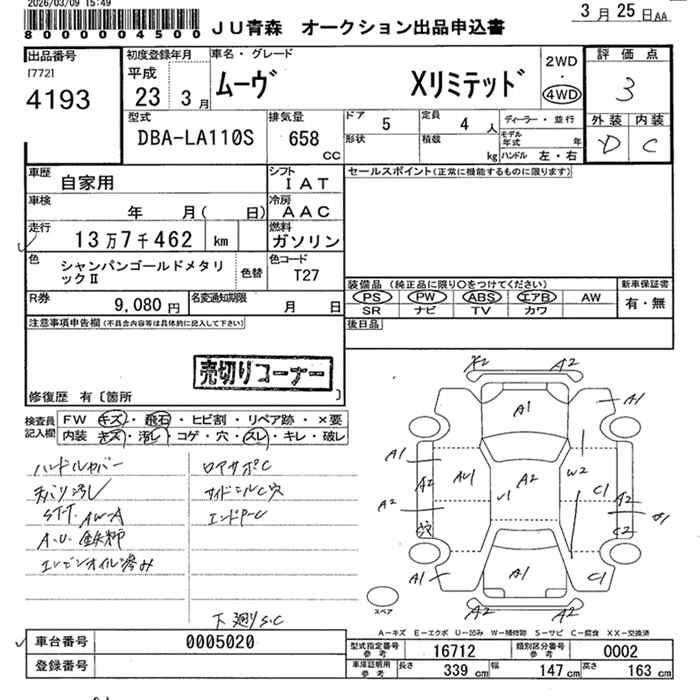 2026/03/09 15:49
800004500
JU青森 オークション出品申込書
3月25日AA
出品番号
[772]
4193
初度登録年月
平成
23 3月
車名・グレード
ムーヴ Xリミテッド
2WD
・
4WD
評価点
3
外装 内装
D C
型式
DBA-LA110S
排気量
658
CC
ドア 5
形状
定員 4人
積載 kg
ディーラー・並行
モデル年式 年
ハンドル 左・右
車歴
自家用
シフト
IAT
車検
年 月( 日)
冷房
AAC
走行
13万7千462 km
燃料
ガソリン
色
シャンパンゴールドメタリックⅡ
色替
色コード
T27
R券
9,080円
名変通知期限
月 日
セールスポイント(正常に機能するものに限ります)
装備品 (純正品に限り○をつけてください)
新車保証書
PS PW ABS エアB AW
SR ナビ TV カワ
有・無
後日品
注意事項申告欄(不具合内容等は具体的に記入して下さい)
売切りコーナー
修復歴 有〔箇所 〕
検査員記入欄
FW キズ・飛石・ヒビ割・リペア跡・×要
内装 キズ・汚レ・コゲ・穴・スレ・キレ・破レ
ハンドルカバー
ロアサポC
天バリ汚し
サイドシルC穴
STT. AW-A
エンドPC
A.U.
エンジンオイル滲み
下廻りS.C
X2 A2
A1
A1
A1
A2
A2
W2
C1
A2
C2
A1
A1
C1
A2
A2
スペア
A-キズ E-エクボ U-凹み W-補修跡 S-サビ C-腐食 XX-交換済
車台番号
0005020
登録番号
型式指定番号 参考
16712
類別区分番号 参考
0002
車庫証明用 参考
長さ 339 cm
幅 147 cm
高さ 163 cm